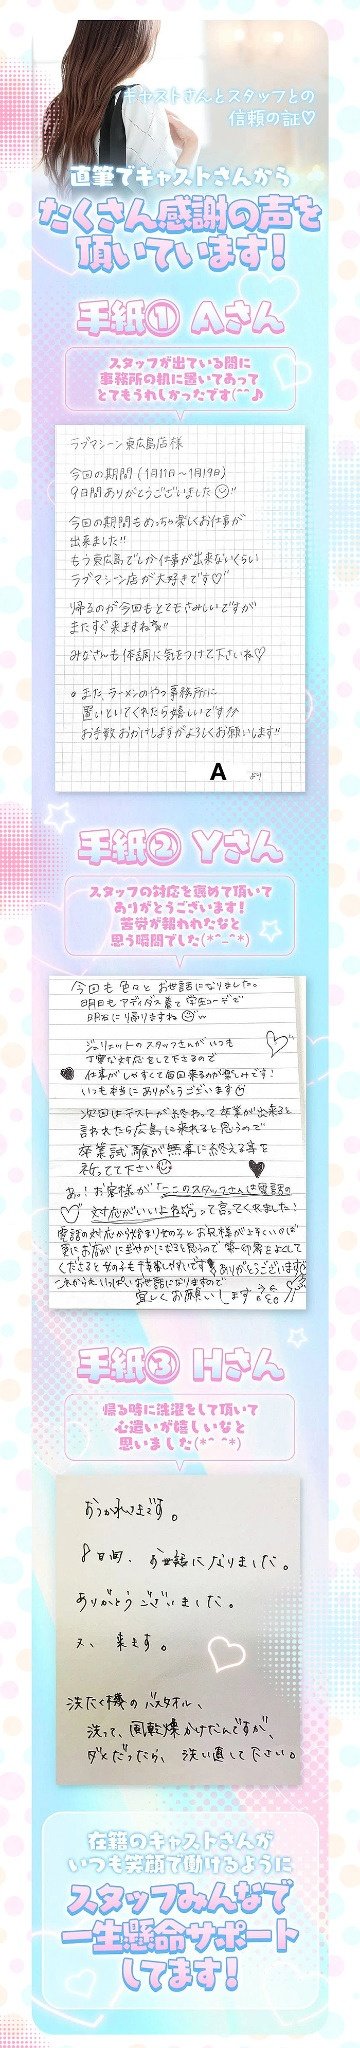 キャストさんとスタッフとの
信頼の証♡
直筆でキャストさんから
たくさん感謝の声を
頂いています！
手紙① Aさん
スタッフが出ている間に
事務所の机に置いてあって
とてもうれしかったです(^^♪
ラブマシーン東広島店様
今回の期間（1月11日～1月19日）
9日間ありがとうございました
今回の期間もめっちゃ楽しくお仕事が
出来ました!!
もう東広島でしか仕事が出来ないくらい
ラブマシーン店が大好きです♡
帰るのが今回もとてもさみしいですが
またすぐ来ますね
みなさんも体調に気をつけて下さいね♡
○また、ラーメンのやつ事務所に
置いといてくれたら嬉しいです
お手数おかけしますがよろしくお願いします!!
A より
手紙② Yさん
スタッフの対応を褒めて頂いて
ありがとうございます！
苦労が報われたなと
思う瞬間でした(*^-^*)
今回も色々とお世話になりました。
明日もアディダス着て学生コーデで
明るに帰りますね
ジュリエットのスタッフさんがいつも
丁寧な対応をして下さるので
仕事がしやすくて毎回来るのが楽しみです！
いつも本当にありがとうございます
次回はテストが終わって卒業が出来ると
言われたら広島に来れると思うので
卒業試験が無事に終える事を
祈ってて下さい
あっ！お客様が「ここのスタッフさんは電話の
対応がいいよね」って言ってくれました！
電話の対応から始まり女の子とお客様が上手くいけば
更にお店がにぎやかになると思うので第一印象をよくして
くださると女の子も接客しやすいです ありがとうございます
これからもいっぱいお世話になりますので
宜しくお願いします
手紙③ Hさん
帰る時に洗濯をして頂いて
心遣いが嬉しいなと
思いました(*^-^*)
おつかれさまです。
8日間、お世話になりました。
ありがとうございました。
又、来ます。
洗たく機のバスタオル、
洗って、風乾燥かけたんですが、
ダメだったら、洗い直して下さい。
在籍のキャストさんが
いつも笑顔で働けるように
スタッフみんなで
一生懸命サポート
してます！